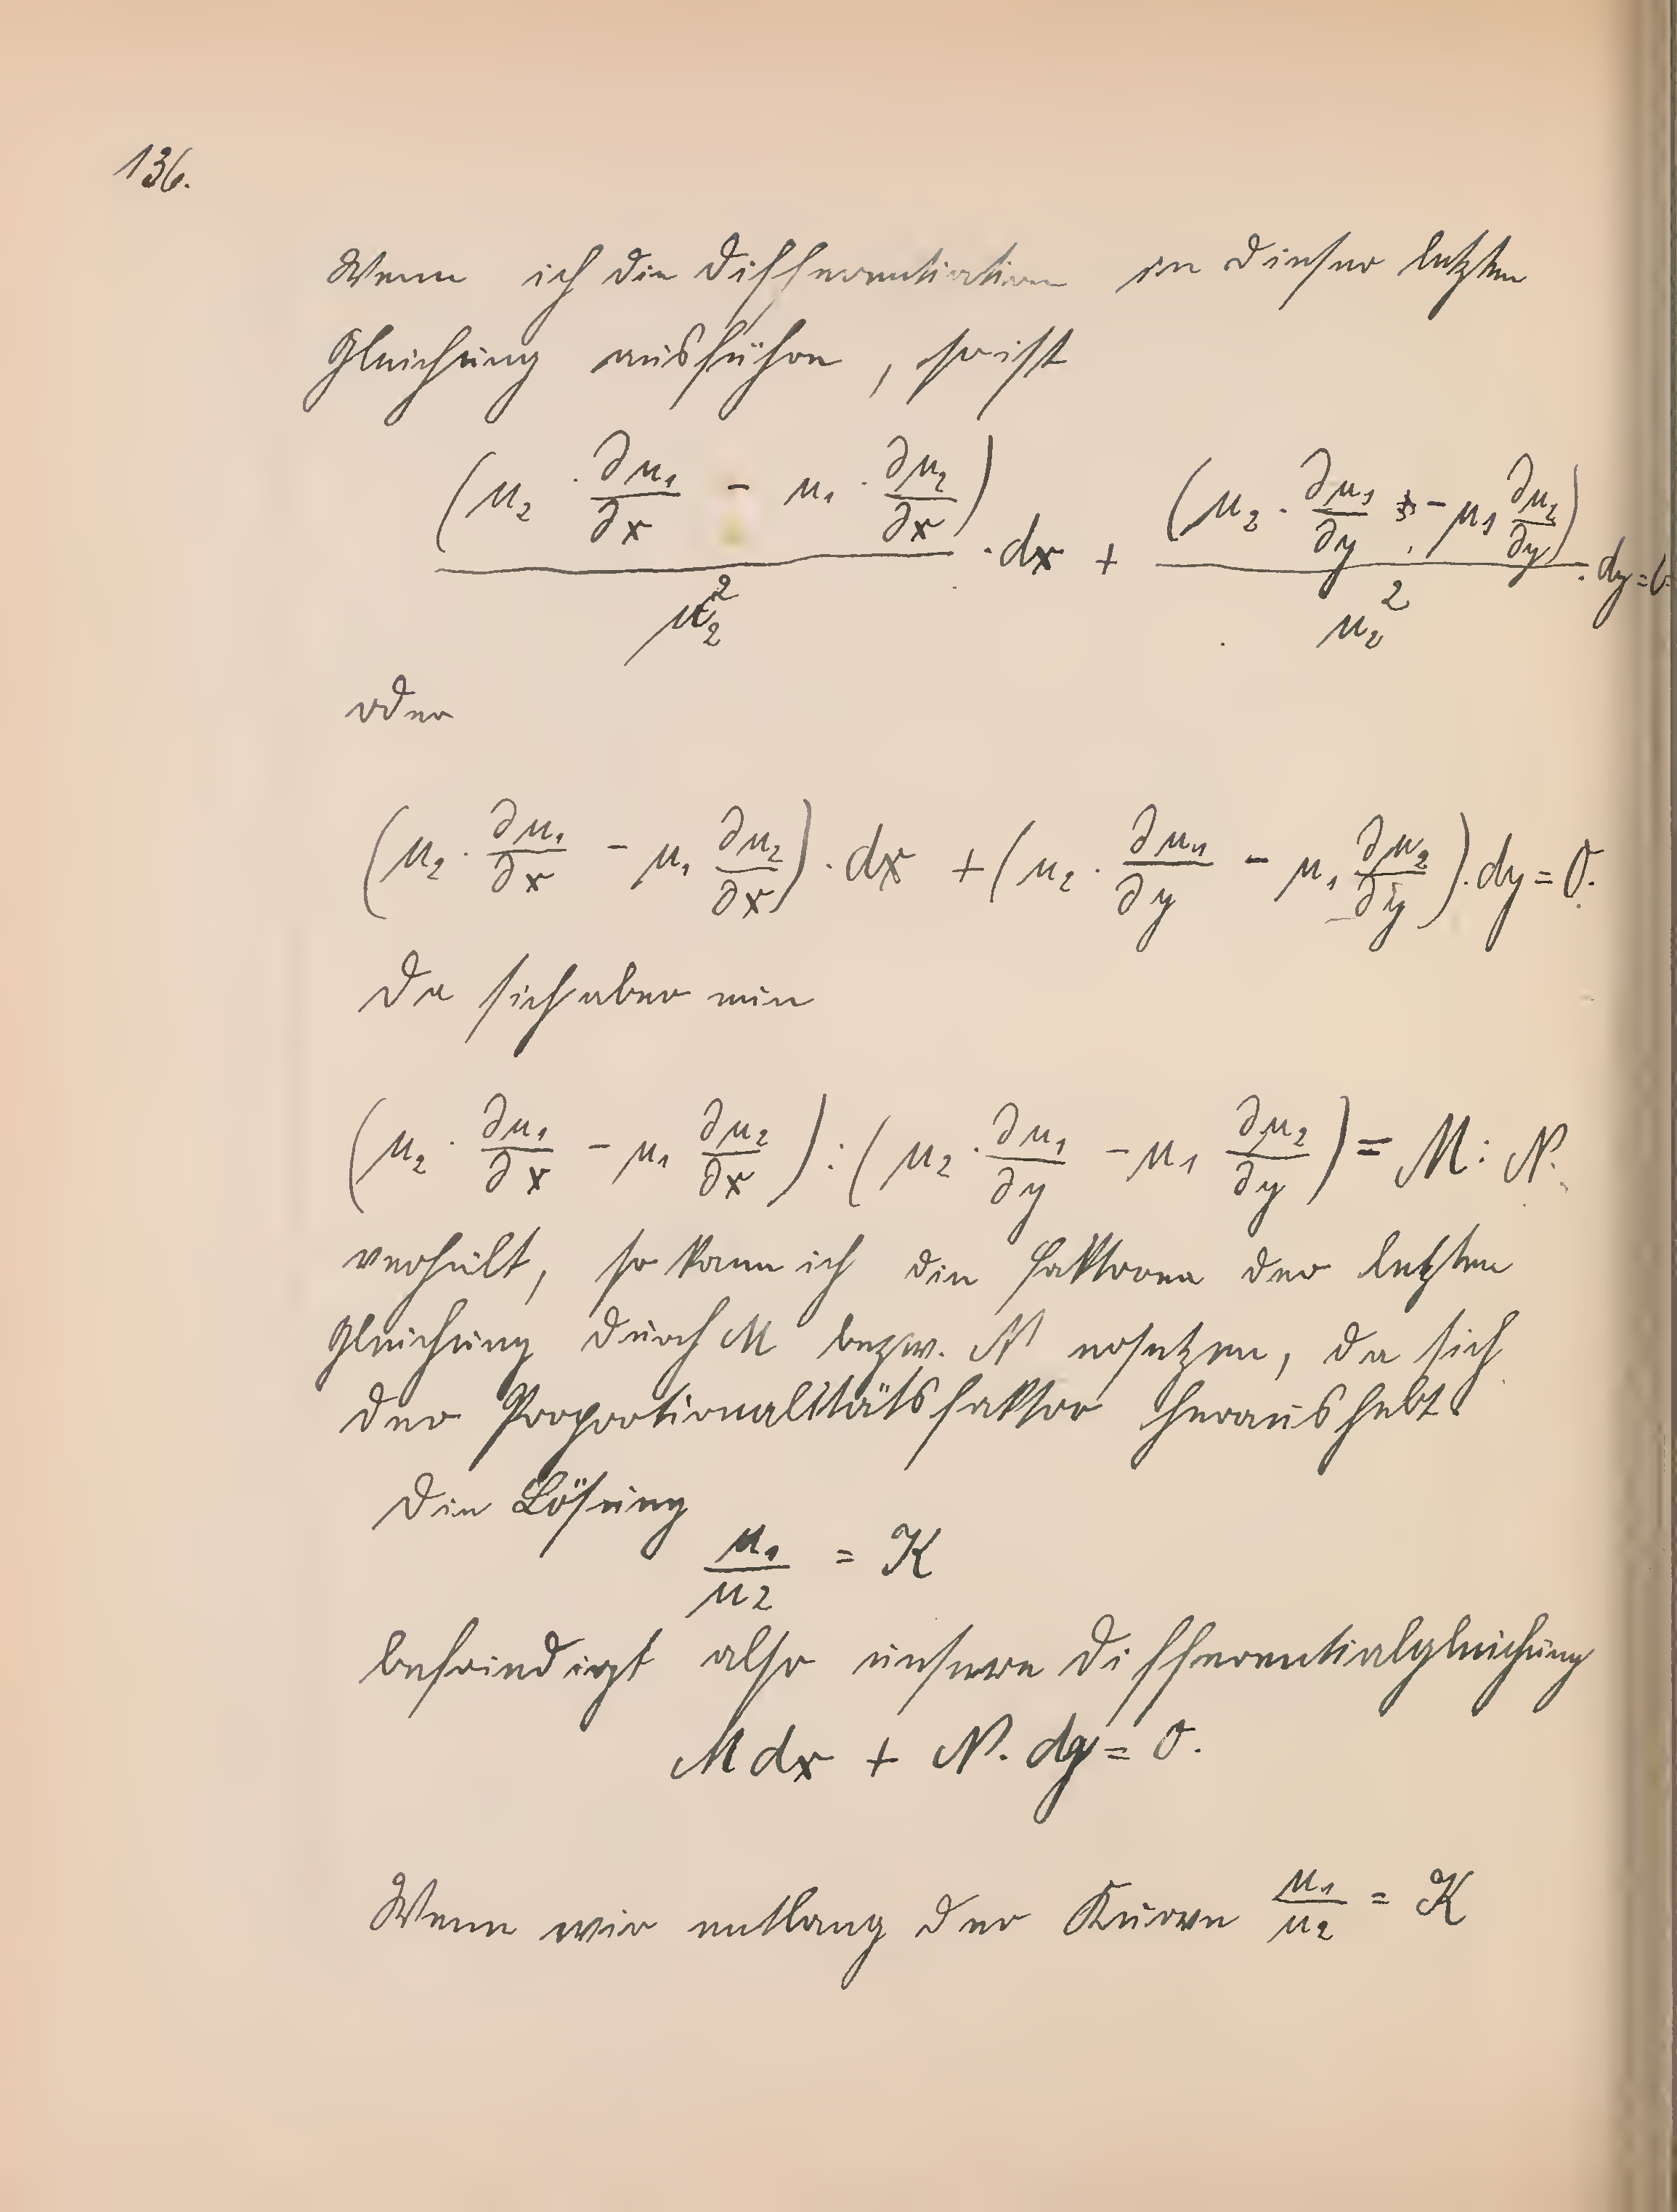 136.
Wenn ich die Differentiation in dieser letzten
Gleichung ausführe, so ist
(μ₂ · ∂μ₁/∂x − μ₁ · ∂μ₂/∂x)/μ₂² · dx + (μ₂ · ∂μ₁/∂y − μ₁ ∂μ₂/∂y)/μ₂² · dy = 0
oder
(μ₂ · ∂μ₁/∂x − μ₁ ∂μ₂/∂x) · dx + (μ₂ · ∂μ₁/∂y − μ₁ ∂μ₂/∂y) · dy = 0.
Da sich aber nun
(μ₂ · ∂μ₁/∂x − μ₁ ∂μ₂/∂x) : (μ₂ · ∂μ₁/∂y − μ₁ ∂μ₂/∂y) = M : N.
verhält, so kann ich die Faktoren der letzten
Gleichung durch M bezw. N ersetzen, da sich
der Proportionalitätsfaktor heraushebt.
Die Lösung
μ₁/μ₂ = K
befriedigt also unsere Differentialgleichung
M dx + N · dy = 0.
Wenn wir entlang der Kurve μ₁/μ₂ = K